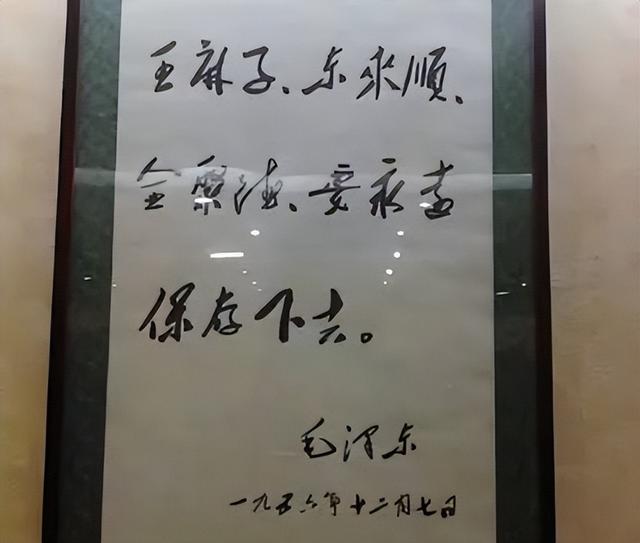 王麻子、东来順、
全聚德、要永远
保存下去。
毛泽东
一九五六年十二月七日